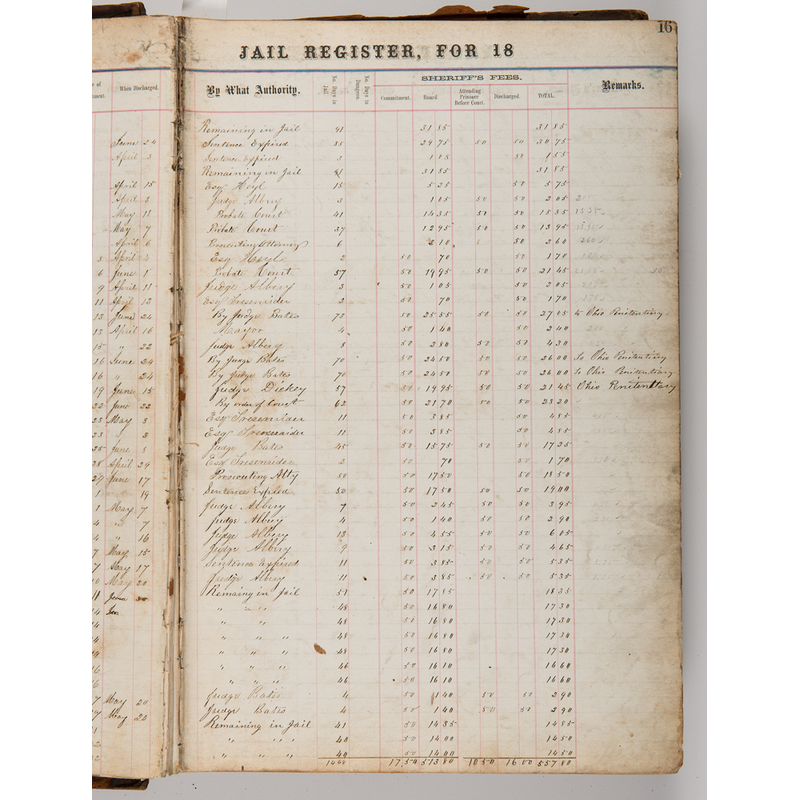 16
JAIL REGISTER, FOR 18
When Discharged.
By What Authority.
No. Days in Jail
No. Days in Dungeon.
SHERIFF'S FEES.
Commitment.
Board
Attending Prisoner Before Court.
Discharged.
TOTAL.
Remarks.
Remaining in Jail 91 31 85 31 85
June 24 Sentence Expired 85 29 75 50 50 30 75
April 3 Sentence Expired 3 1 05 50 1 55
Remaining in Jail 31 85 31 85
April 15 Esq Hoyl 15 5 25 50 5 75
April 3 Judge Albry 3 1 05 50 50 2 05
May 12 Probate Court 41 14 35 50 50 15 35
May 7 Probate Court 37 12 95 50 50 13 95
April 6 Prosecuting Attorney 6 2 10 50 2 60
April 4 Esq Hoyl 2 50 70 50 1 70
June 1 Probate Court 57 50 19 95 50 50 21 45
April 11 Judge Albry 3 50 1 05 50 2 05
April 12 Esq Tresenrider 2 50 70 50 1 70
June 24 By Judge Bates 73 50 25 55 50 50 27 05 to Ohio Penitentiary
April 16 Mayor 4 50 1 40 50 2 40
" 22 Judge Albry 8 50 2 80 50 50 4 30
June 24 By Judge Bates 70 50 24 50 50 50 26 00 To Ohio Penitentiary
" 24 By Judge Bates 70 50 24 50 50 50 26 00 To Ohio Penitentiary
June 15 Judge Dickey 57 50 19 95 50 50 21 45 Ohio Penitentiary
June 22 By order of Court 62 50 21 70 50 50 23 20
May 3 Esq Tresenrider 11 50 3 85 50 4 85
" 3 Esq Tresenrider 11 50 3 85 50 4 85
June 8 Judge Bates 45 50 15 75 50 50 17 25
April 29 Esq Tresenrider 2 50 70 50 1 70
June 17 Prosecuting Atty 50 50 17 50 50 18 50
" 19 Sentence Expired 50 50 17 50 50 50 19 00
May 7 Judge Albry 7 50 2 45 50 50 3 95
" 7 Judge Albry 4 50 1 40 50 50 2 90
" 16 Judge Albry 13 50 4 55 50 50 6 05
May 15 Judge Albry 9 50 3 15 50 50 4 65
May 17 Sentence Expired 11 50 3 85 50 50 5 35
May 20 Judge Albry 11 50 3 85 50 50 5 35
June 30 Remaing in Jail 51 50 17 85 18 35
" " " 48 50 16 80 17 30
" " 48 50 16 80 17 30
" " " 48 50 16 80 17 30
" " " 48 50 16 80 17 30
" " " 46 50 16 10 16 60
" " " 46 50 16 10 16 60
May 20 Judge Bates 4 50 1 40 50 50 2 90
May 22 Judge Bates 4 50 1 40 50 50 2 90
Remaining in Jail 41 50 14 35 14 85
" " " 40 50 14 00 14 50
" " " 40 50 14 00 14 50
17.50 513 80 10 50 16 00 557 80